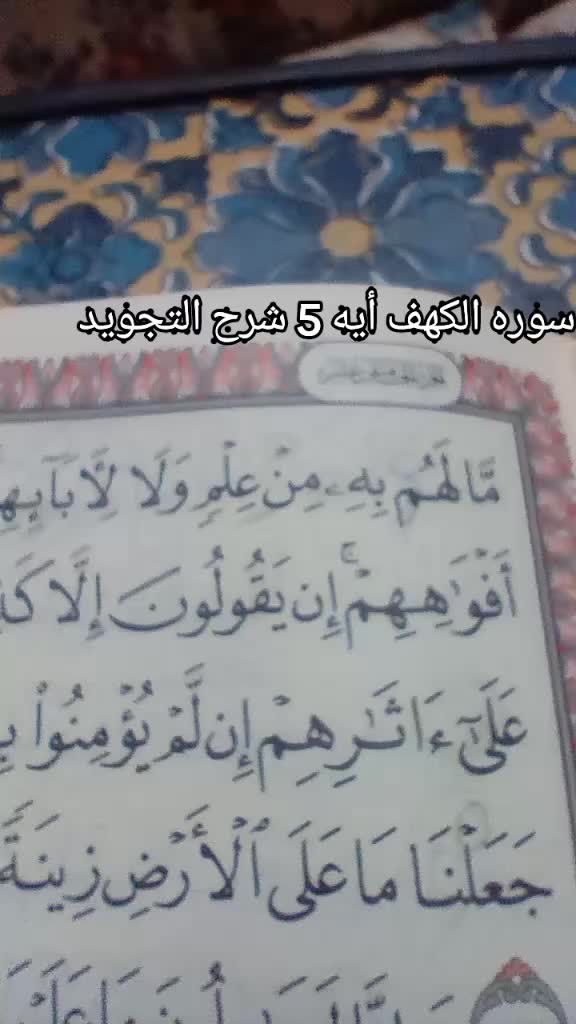 سوره الكهف أيه 5 شرج التجويد
مَّا لَهُم بِهِۦ مِنْ عِلْمٍ وَلَا لِءَابَآئِهِ
أَفْوَٰهِهِمْ ۚ إِن يَقُولُونَ إِلَّا كَ
عَلَىٰٓ ءَاثَٰرِهِمْ إِن لَّمْ يُؤْمِنُوا۟ بِ
جَعَلْنَا مَا عَلَى ٱلْأَرْضِ زِينَةً